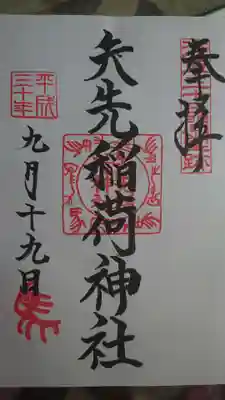 奉拝
矢先稲荷神社
平成
三十年
九月十九日